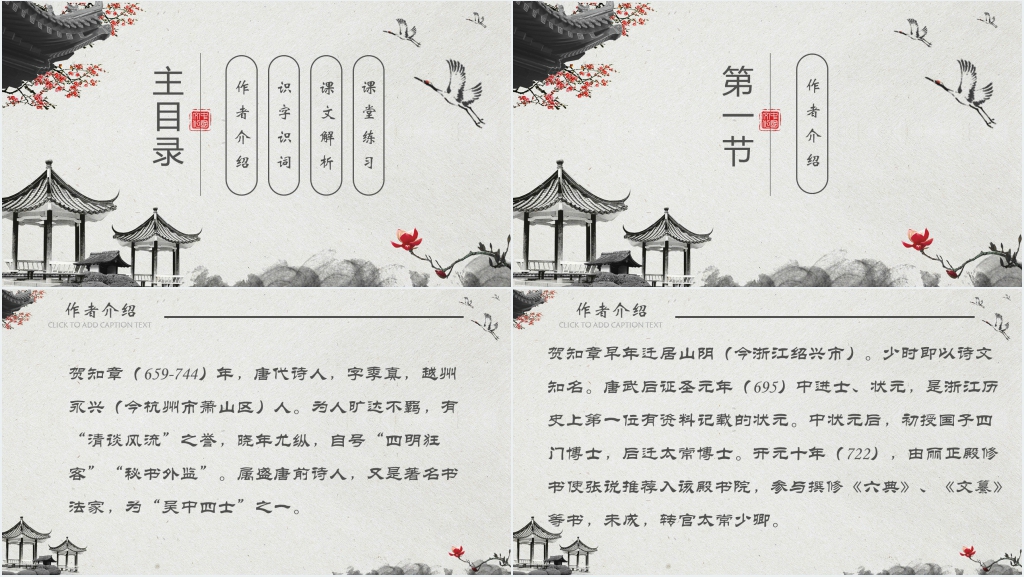 主目录
作者介绍
识字识词
课文解析
课堂练习
第一节
作者介绍
作者介绍
CLICK TO ADD CAPTION TEXT
贺知章（659-744）年，唐代诗人，字季真，越州
永兴（今杭州市萧山区）人。为人旷达不羁，有
“清谈风流”之誉，晚年尤纵，自号“四明狂
客”“秘书外监”。属盛唐前诗人，又是著名书
法家，为“吴中四士”之一。
作者介绍
CLICK TO ADD CAPTION TEXT
贺知章早年迁居山阴（今浙江绍兴市）。少时即以诗文
知名。唐武后证圣元年（695）中进士、状元，是浙江历
史上第一位有资料记载的状元。中状元后，初授国子四
门博士，后迁太常博士。开元十年（722），由丽正殿修
书使张说推荐入该殿书院，参与撰修《六典》、《文纂》
等书，未成，转官太常少卿。